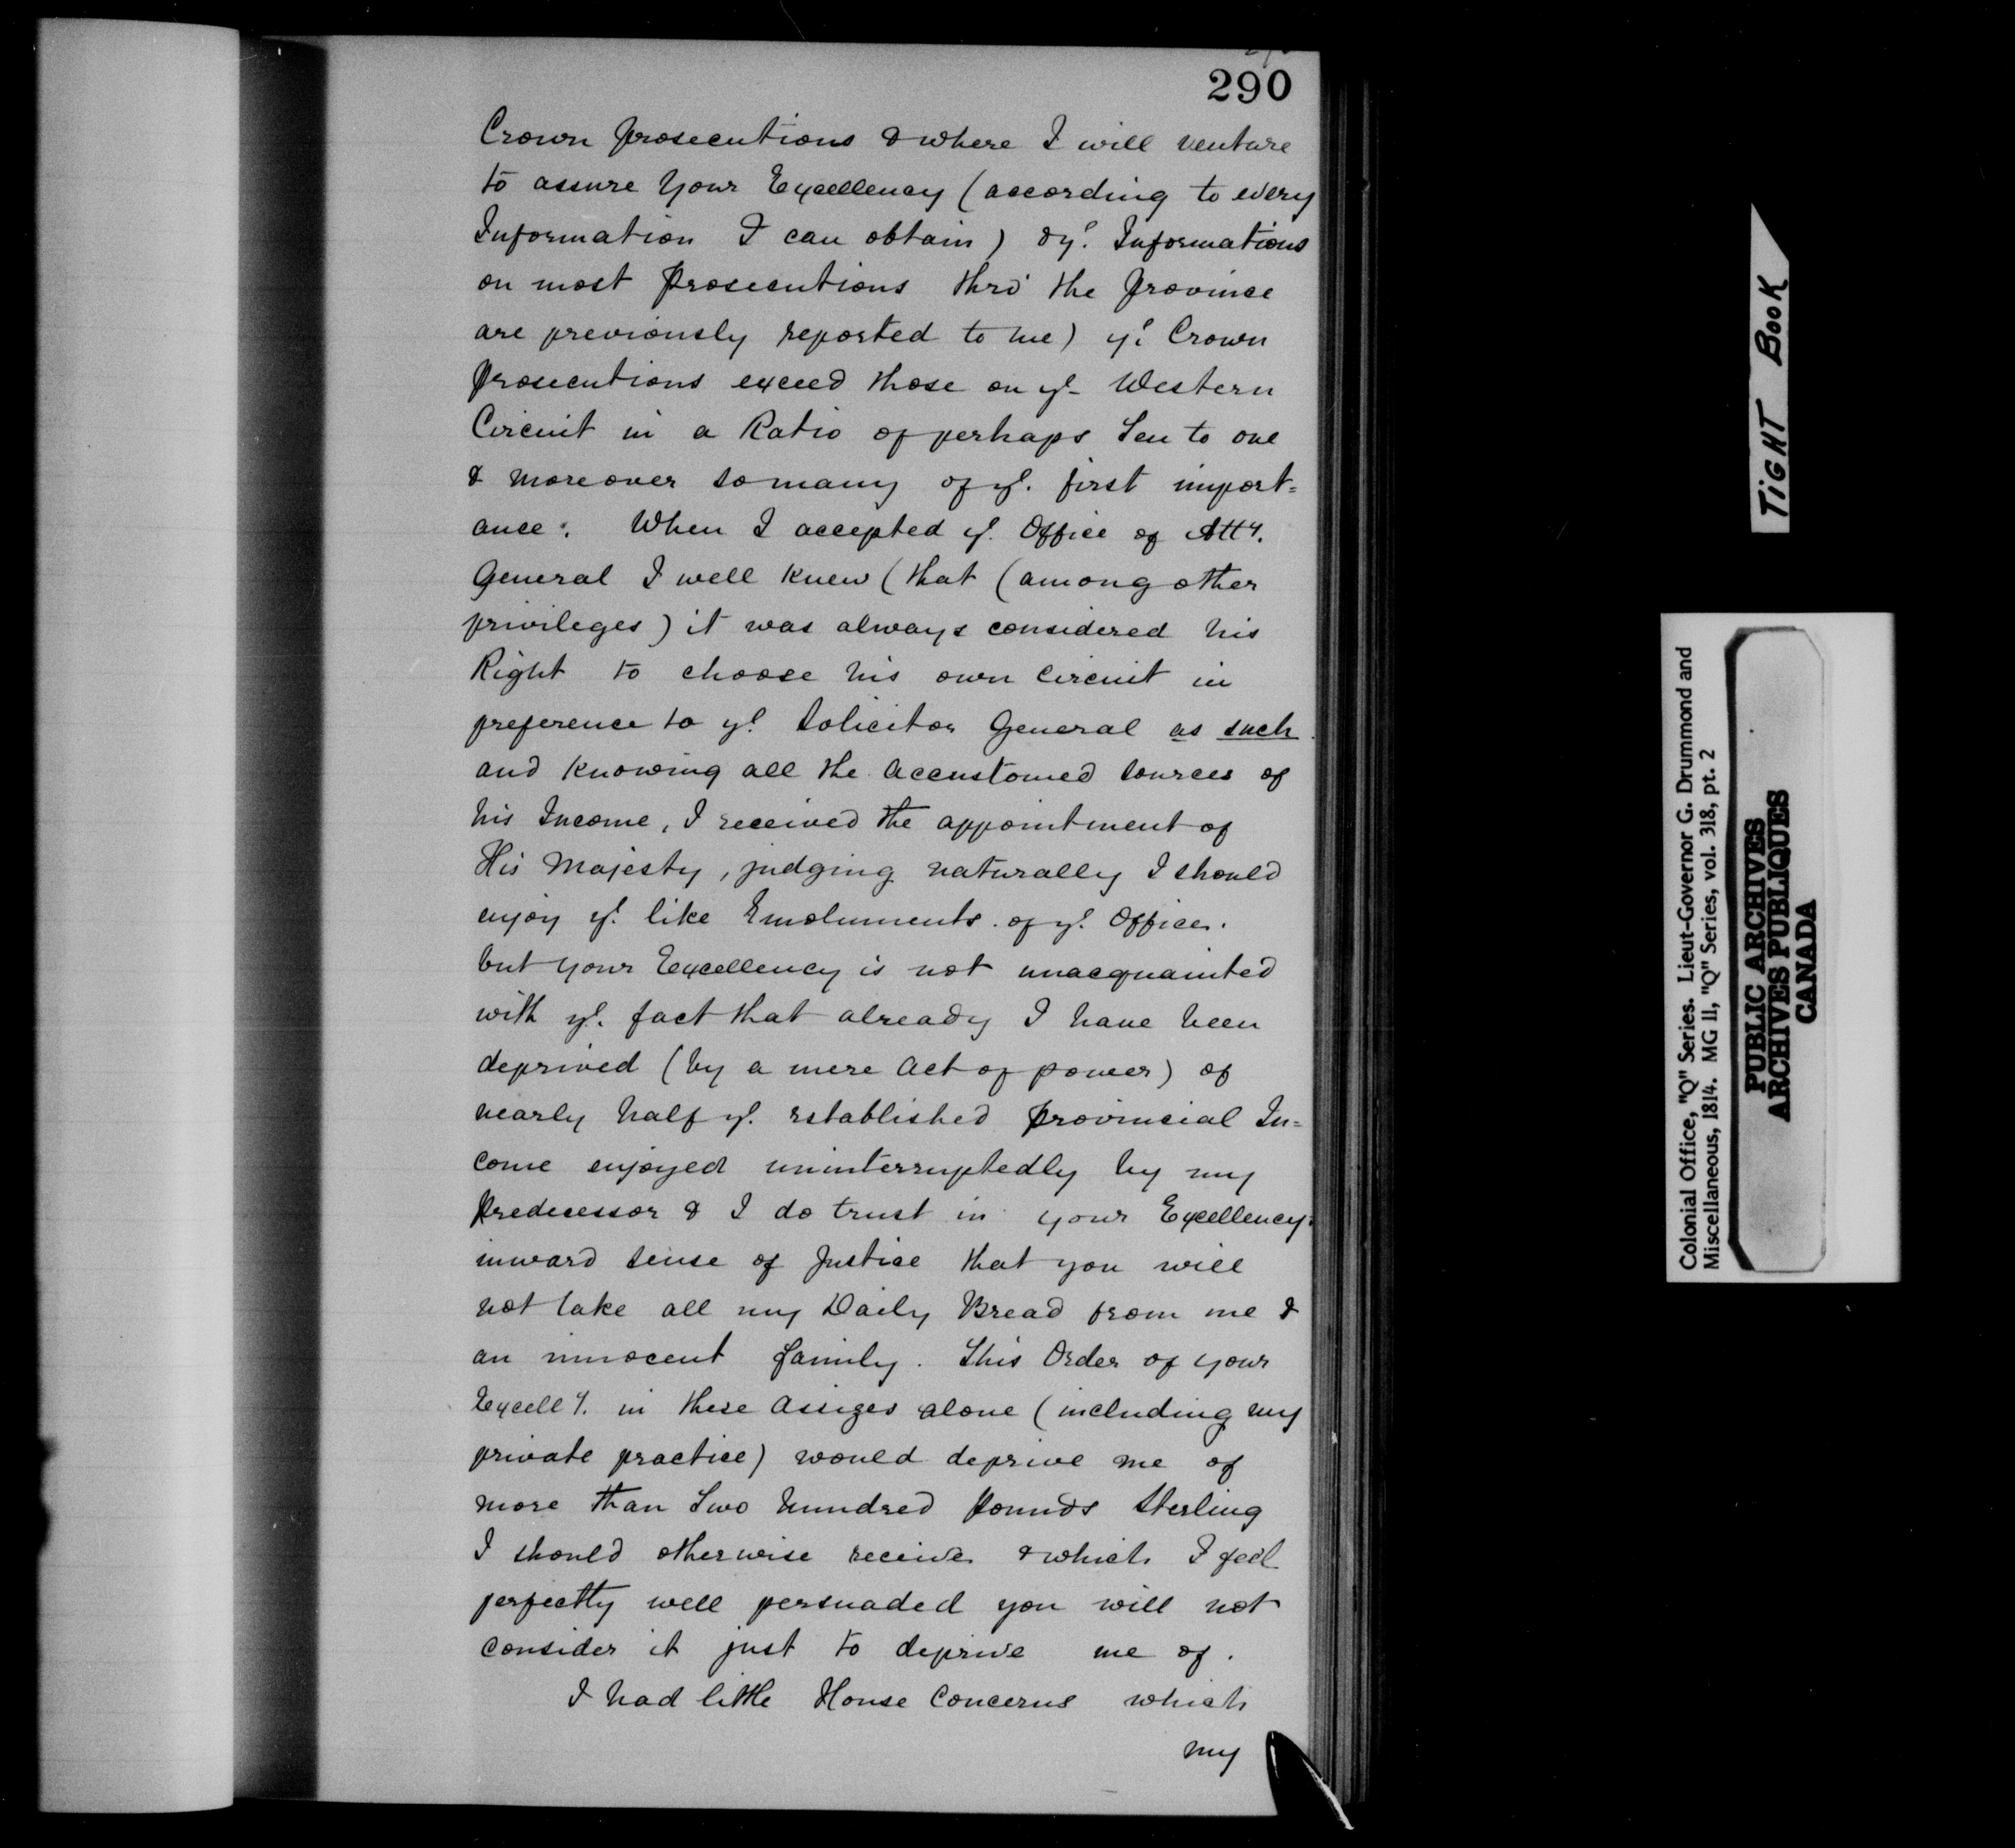 290
Crown prosecutions & where I will venture
to assure Your Excellency (according to every
Information I can obtain) & yᵉ. Informations
on most prosecutions thro' the province
are previously reported to me) yᵉ. Crown
prosecutions exceed those on yᵉ Western
Circuit in a Ratio of perhaps Ten to one
& moreover so many of yᵉ. first import=
ance. When I accepted yᵉ. Office of Attʸ.
General I well knew (that (among other
privileges) it was always considered his
Right to choose his own Circuit in
preference to yᵉ. Solicitor General as such.
and knowing all the accustomed sources of
his Income, I received the appointment of
His Majesty, judging naturally I should
enjoy yᵉ. like Emoluments. of yᵉ. Office.
but your Excellency is not unacquainted
with yᵉ. fact that already I have been
deprived (by a mere act of power) of
nearly half yᵉ. established provincial In=
come enjoyed uninterruptedly by my
predecessor & I do trust in your Excellency.
inward sense of Justice that you will
not take all my Daily Bread from me &
an innocent family. This Order of your
Excellʸ. in these Assizes alone (including my
private practice) would deprive me of
more than Two hundred pounds Sterling
I should otherwise receive & which I feel
perfectly well persuaded you will not
consider it just to deprive me of.
I had little House Concerns which
my
TIGHT BOOK
Colonial Office, "Q" Series. Lieut-Governor G. Drummond and
Miscellaneous, 1814. MG 11, "Q" Series, vol. 318, pt. 2
PUBLIC ARCHIVES
ARCHIVES PUBLIQUES
CANADA